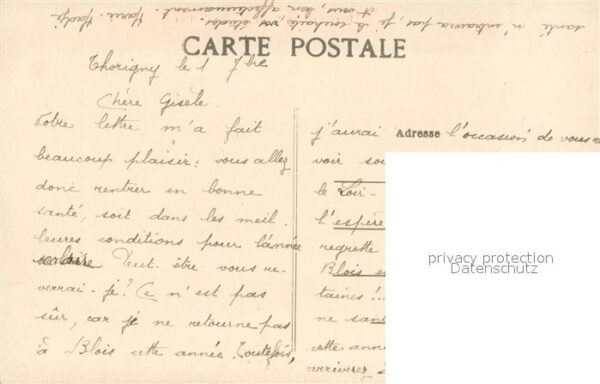 santé n'entravera pas, je le souhaite, vos études.
A vous, bien affectueusement
CARTE POSTALE
Thorigny le 1 7bre
Chère Gisèle.
Votre lettre m'a fait
beaucoup plaisir: vous allez
donc rentrer en bonne
santé, soit dans les meil-
leures conditions pour l'année
scolaire Peut-être vous re-
verrai-je? Ce n'est pas
sûr, car je ne retourne pas
à Blois cette année. Toutefois,
j'aurai Adresse l'occasion de vous r
voir sou
le Loir-
l'espère
regrette
Blois e
taines!..
ne san
cette anné
arriverez
privacy protection
Datenschutz